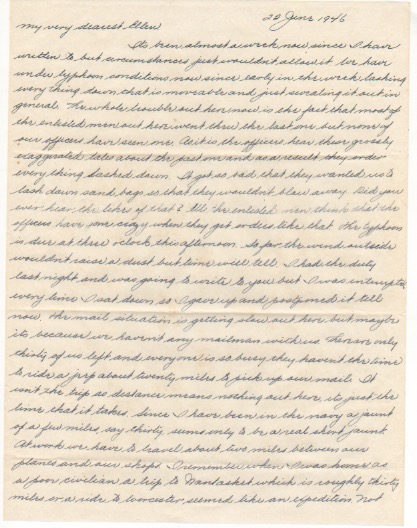 20 June 1946
My very dearest Ellen
Its been almost a week now since I have
written to but circumstances just wouldnt allow it. We have
under typhoon conditions now since early in the week lashing
every thing down that is moveable and just sweating it out in
general. The whole trouble out here now is the fact that most of
the enlisted men out here went thru the last one but none of
our officers have seen one. As it is the officers hear these grossly
exaggerated tales about the past one and as a result they order
every thing lashed down. It got so bad that they wanted us to
lash down sand bags so that they wouldn't blow away. Did you
ever hear the likes of that? All the enlisted men think that the
officers have gone crazy when they get orders like that. The typhoon
is due at three o'clock this afternoon. So far the wind outside
wouldn't raise a dust, but time will tell. I had the duty
last night and was going to write to you but I was interrupted
every time I sat down so I gave up and postponed it till
now. The mail situation is getting slow out here but maybe
its because we haven't any mailman with us. Theres only
thirty of us left and everyone is so busy they havent the time
to ride a jeep about twenty miles to pick up our mail. It
isn't the trip as distance means nothing out here its just the
time that it takes. Since I have been in the navy a jaunt
of a few miles, say thirty seems only to be a real short jaunt.
At work we have to travel about two miles between our
planes and our shops. I remember when I was home as
a poor civilian a trip to Nantasket which is roughly thirty
miles or a ride to Worcester, seemed like an expedition. Not